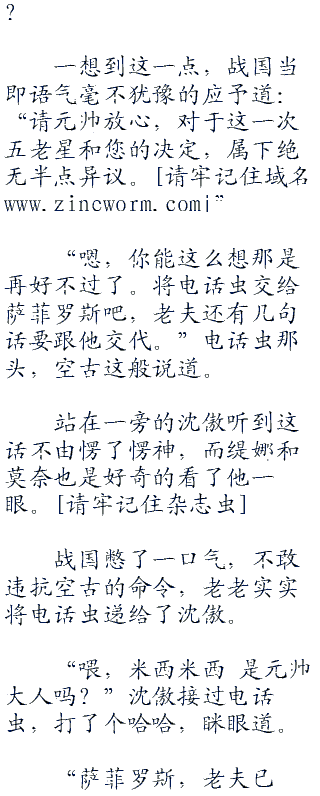 ?
一想到这一点，战国当
即语气毫不犹豫的应予道：
“请元帅放心，对于这一次
五老星和您的决定，属下绝
无半点异议。[请牢记住域名
www.zincworm.com¡”
“嗯，你能这么想那是
再好不过了。将电话虫交给
萨菲罗斯吧，老夫还有几句
话要跟他交代。”电话虫那
头，空古这般说道。
站在一旁的沈傲听到这
话不由愣了愣神，而缇娜和
莫奈也是好奇的看了他一
眼。[请牢记住杂志虫]
战国憋了一口气，不敢
违抗空古的命令，老老实实
将电话虫递给了沈傲。
“喂，米西米西 是元帅
大人吗？”沈傲接过电话
虫，打了个哈哈，眯眼道。
“萨菲罗斯，老夫已